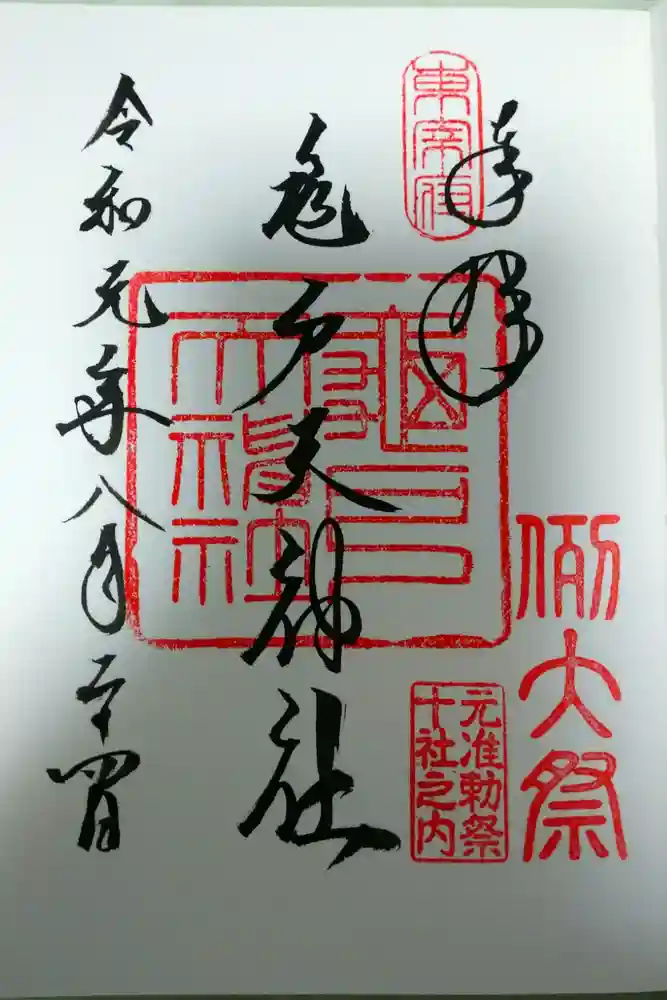 奉拝
東宰府
亀戸天神社
亀戸
天神社
例大祭
元准勅祭
十社之内
令和元年八月二十四日